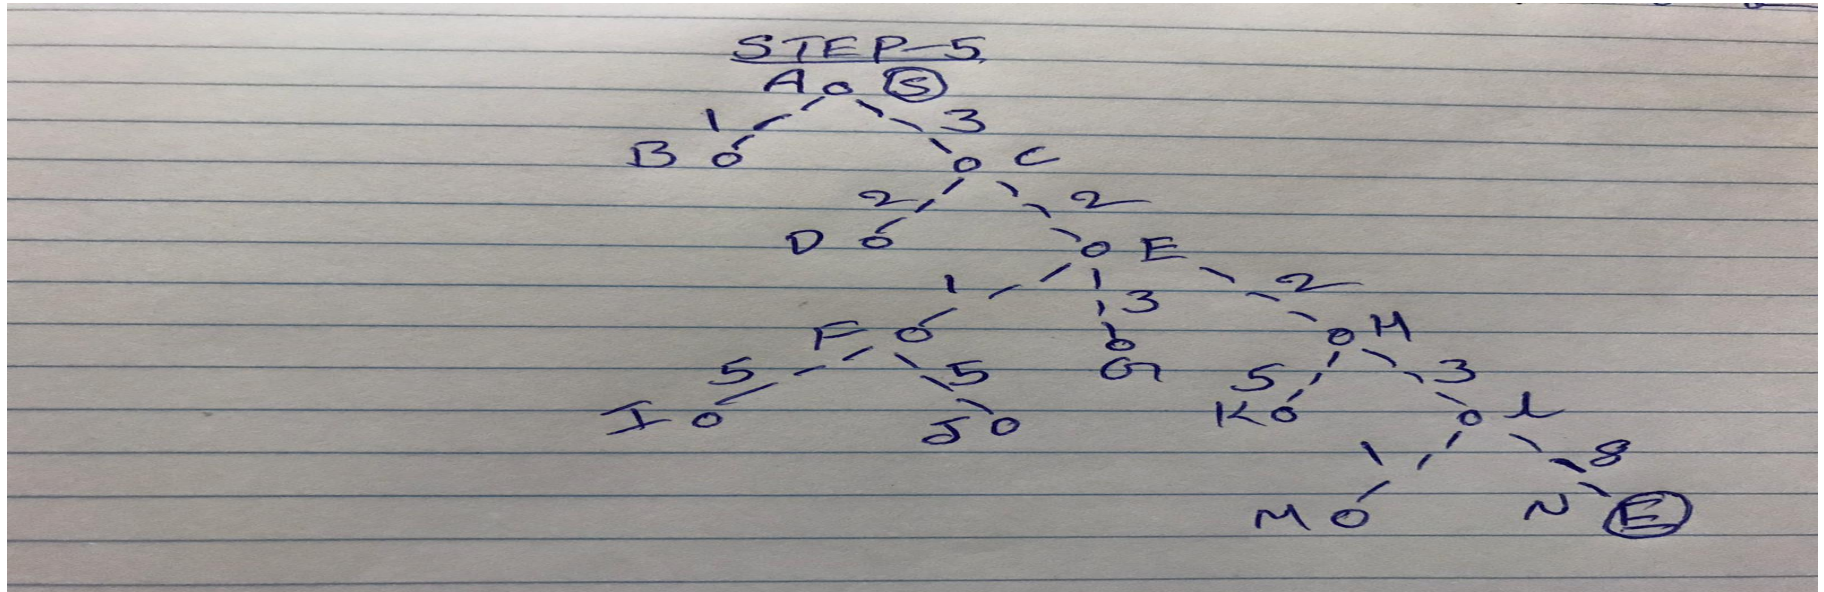 STEP-5
A S
1 3
B C
2 2
D E
1 3 2
F H
5 5 G 5 3
I J K L
1 8
M N E